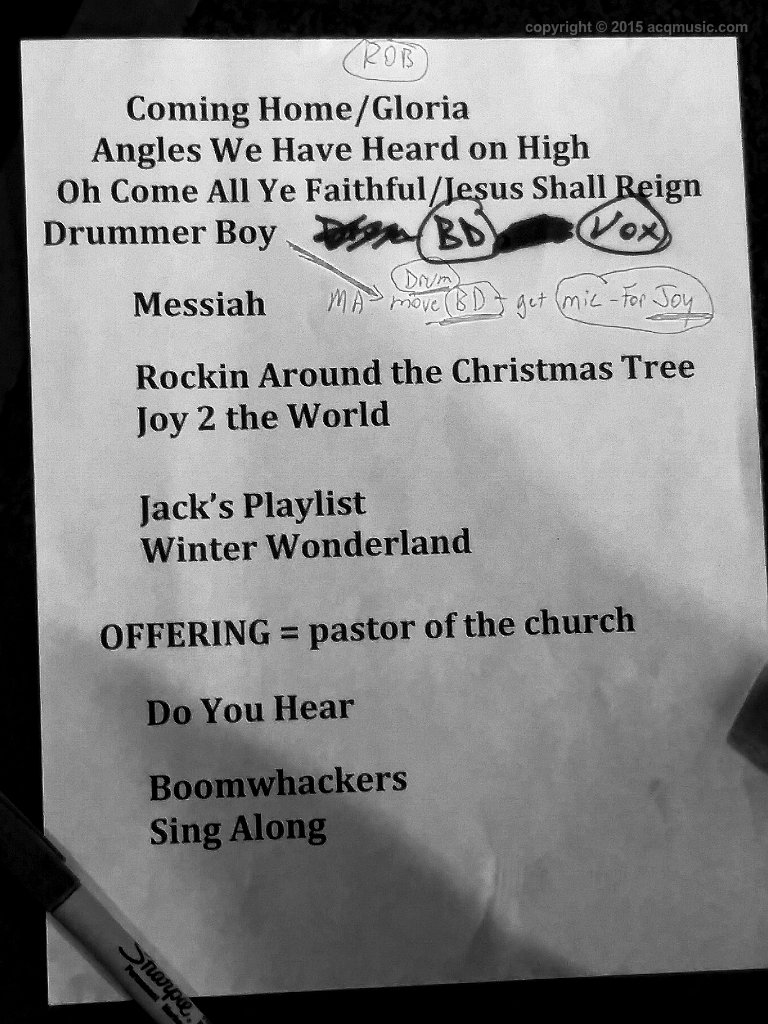 copyright © 2015 acqmusic.com
ROB
Coming Home/Gloria
Angles We Have Heard on High
Oh Come All Ye Faithful/Jesus Shall Reign
Drummer Boy BD Vox
Drum
MA move BD + get mic - For Joy
Messiah
Rockin Around the Christmas Tree
Joy 2 the World
Jack's Playlist
Winter Wonderland
OFFERING = pastor of the church
Do You Hear
Boomwhackers
Sing Along
Sharpie